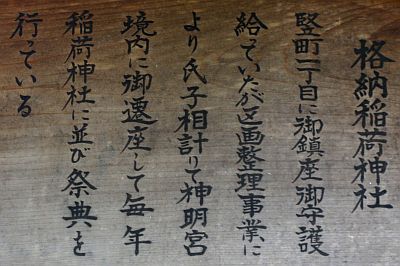 格納稲荷神社
竪町一丁目に御鎮座御守護
給っていたが区画整理事業に
より氏子相計りて神明宮
境内に御遷座して毎年
稲荷神社に並び祭典を
行っている